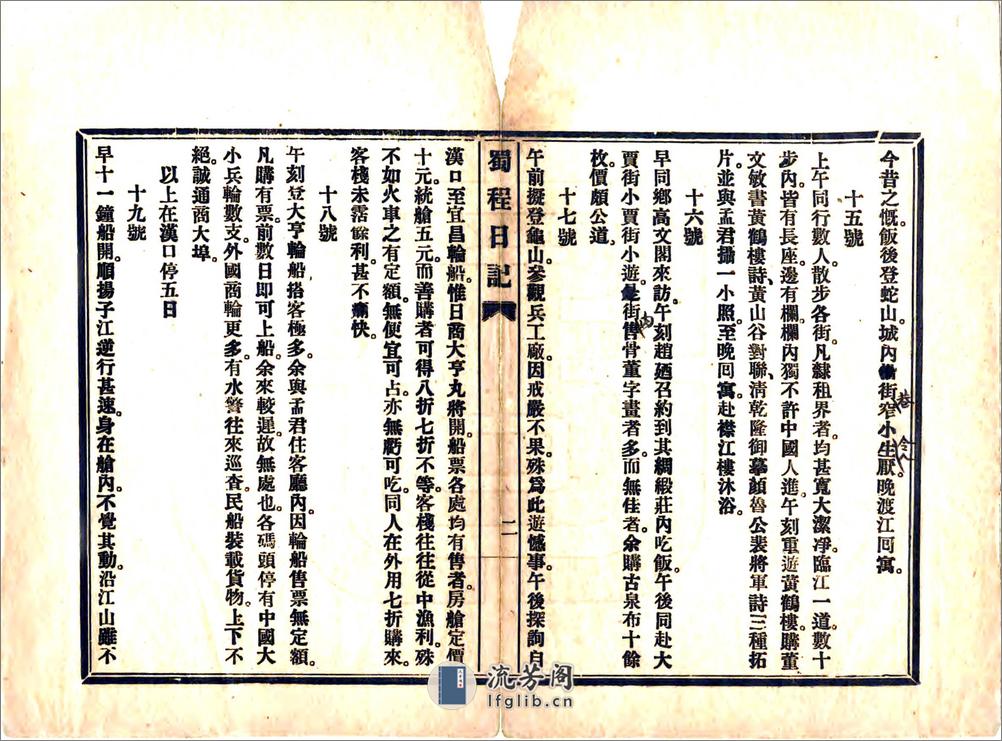 今昔之慨。飯後登蛇山。城內街窄小生厭。晚渡江囘寓。
巷
令人
十五號
上午同行數人。散步各街。凡隸租界者。均甚寬大潔淨。臨江一道。數十
步內皆有長座。邊有欄。欄內獨不許中國人進。午刻重遊黃鶴樓。購董
文敏書黃鶴樓詩、黃山谷對聯、清乾隆御摹顏魯公裴將軍詩三種拓
片。並與孟君攝一小照。至晚囘寓。赴襟江樓沐浴。
十六號
早同鄉高文閣來訪。午刻趙廼召約到其綢緞莊內吃飯。午後同赴大
賈街小賈街小遊。是街售骨董字畫者多。而無佳者。余購古泉布十餘
內
枚。價頗公道。
十七號
午前擬登龜山。參觀兵工廠。因戒嚴不果。殊爲此遊憾事。午後探詢自
蜀程日記
二
漢口至宜昌輪船。惟日商大亨丸將開。船票各處均有售者。房艙定價
十元。統艙五元。而善購者可得八折七折不等。客棧往往從中漁利。殊
不如火車之有定額。無便宜可占。亦無虧可吃。同人在外用七折購來。
客棧未霑餘利。甚不痛快。
十八號
午刻登大亨輪船。搭客極多。余與孟君住客廳內。因輪船售票無定額。
凡購有票。前數日即可上船。余來較遲。故無處也。各碼頭停有中國大
小兵輪數支。外國商輪更多。有水警往來巡查。民船裝載貨物。上下不
絕。誠通商大埠。
以上在漢口停五日
十九號
早十一鐘船開。順揚子江逆行甚速。身在艙內。不覺其動。沿江山雖不
流芳阁
lfglib.cn